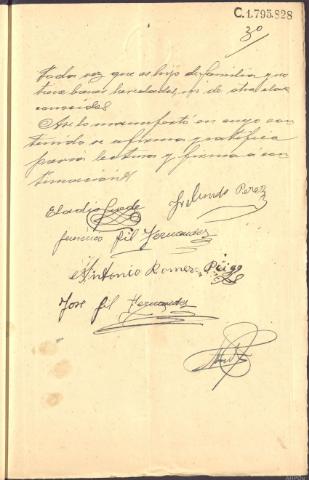 C.1.795.828
3º
toda vez que es hijo de familia y no
tiene bienes heredados, ni de otra clase
conocidos.
Así lo manifestó en cuyo con
tenido se afirma y ratifica
previa lectura y firma á con
tinuación
Eladio
Perez
Francisco Gil Fernandez
Antonio Romero
José Gil Fernandez